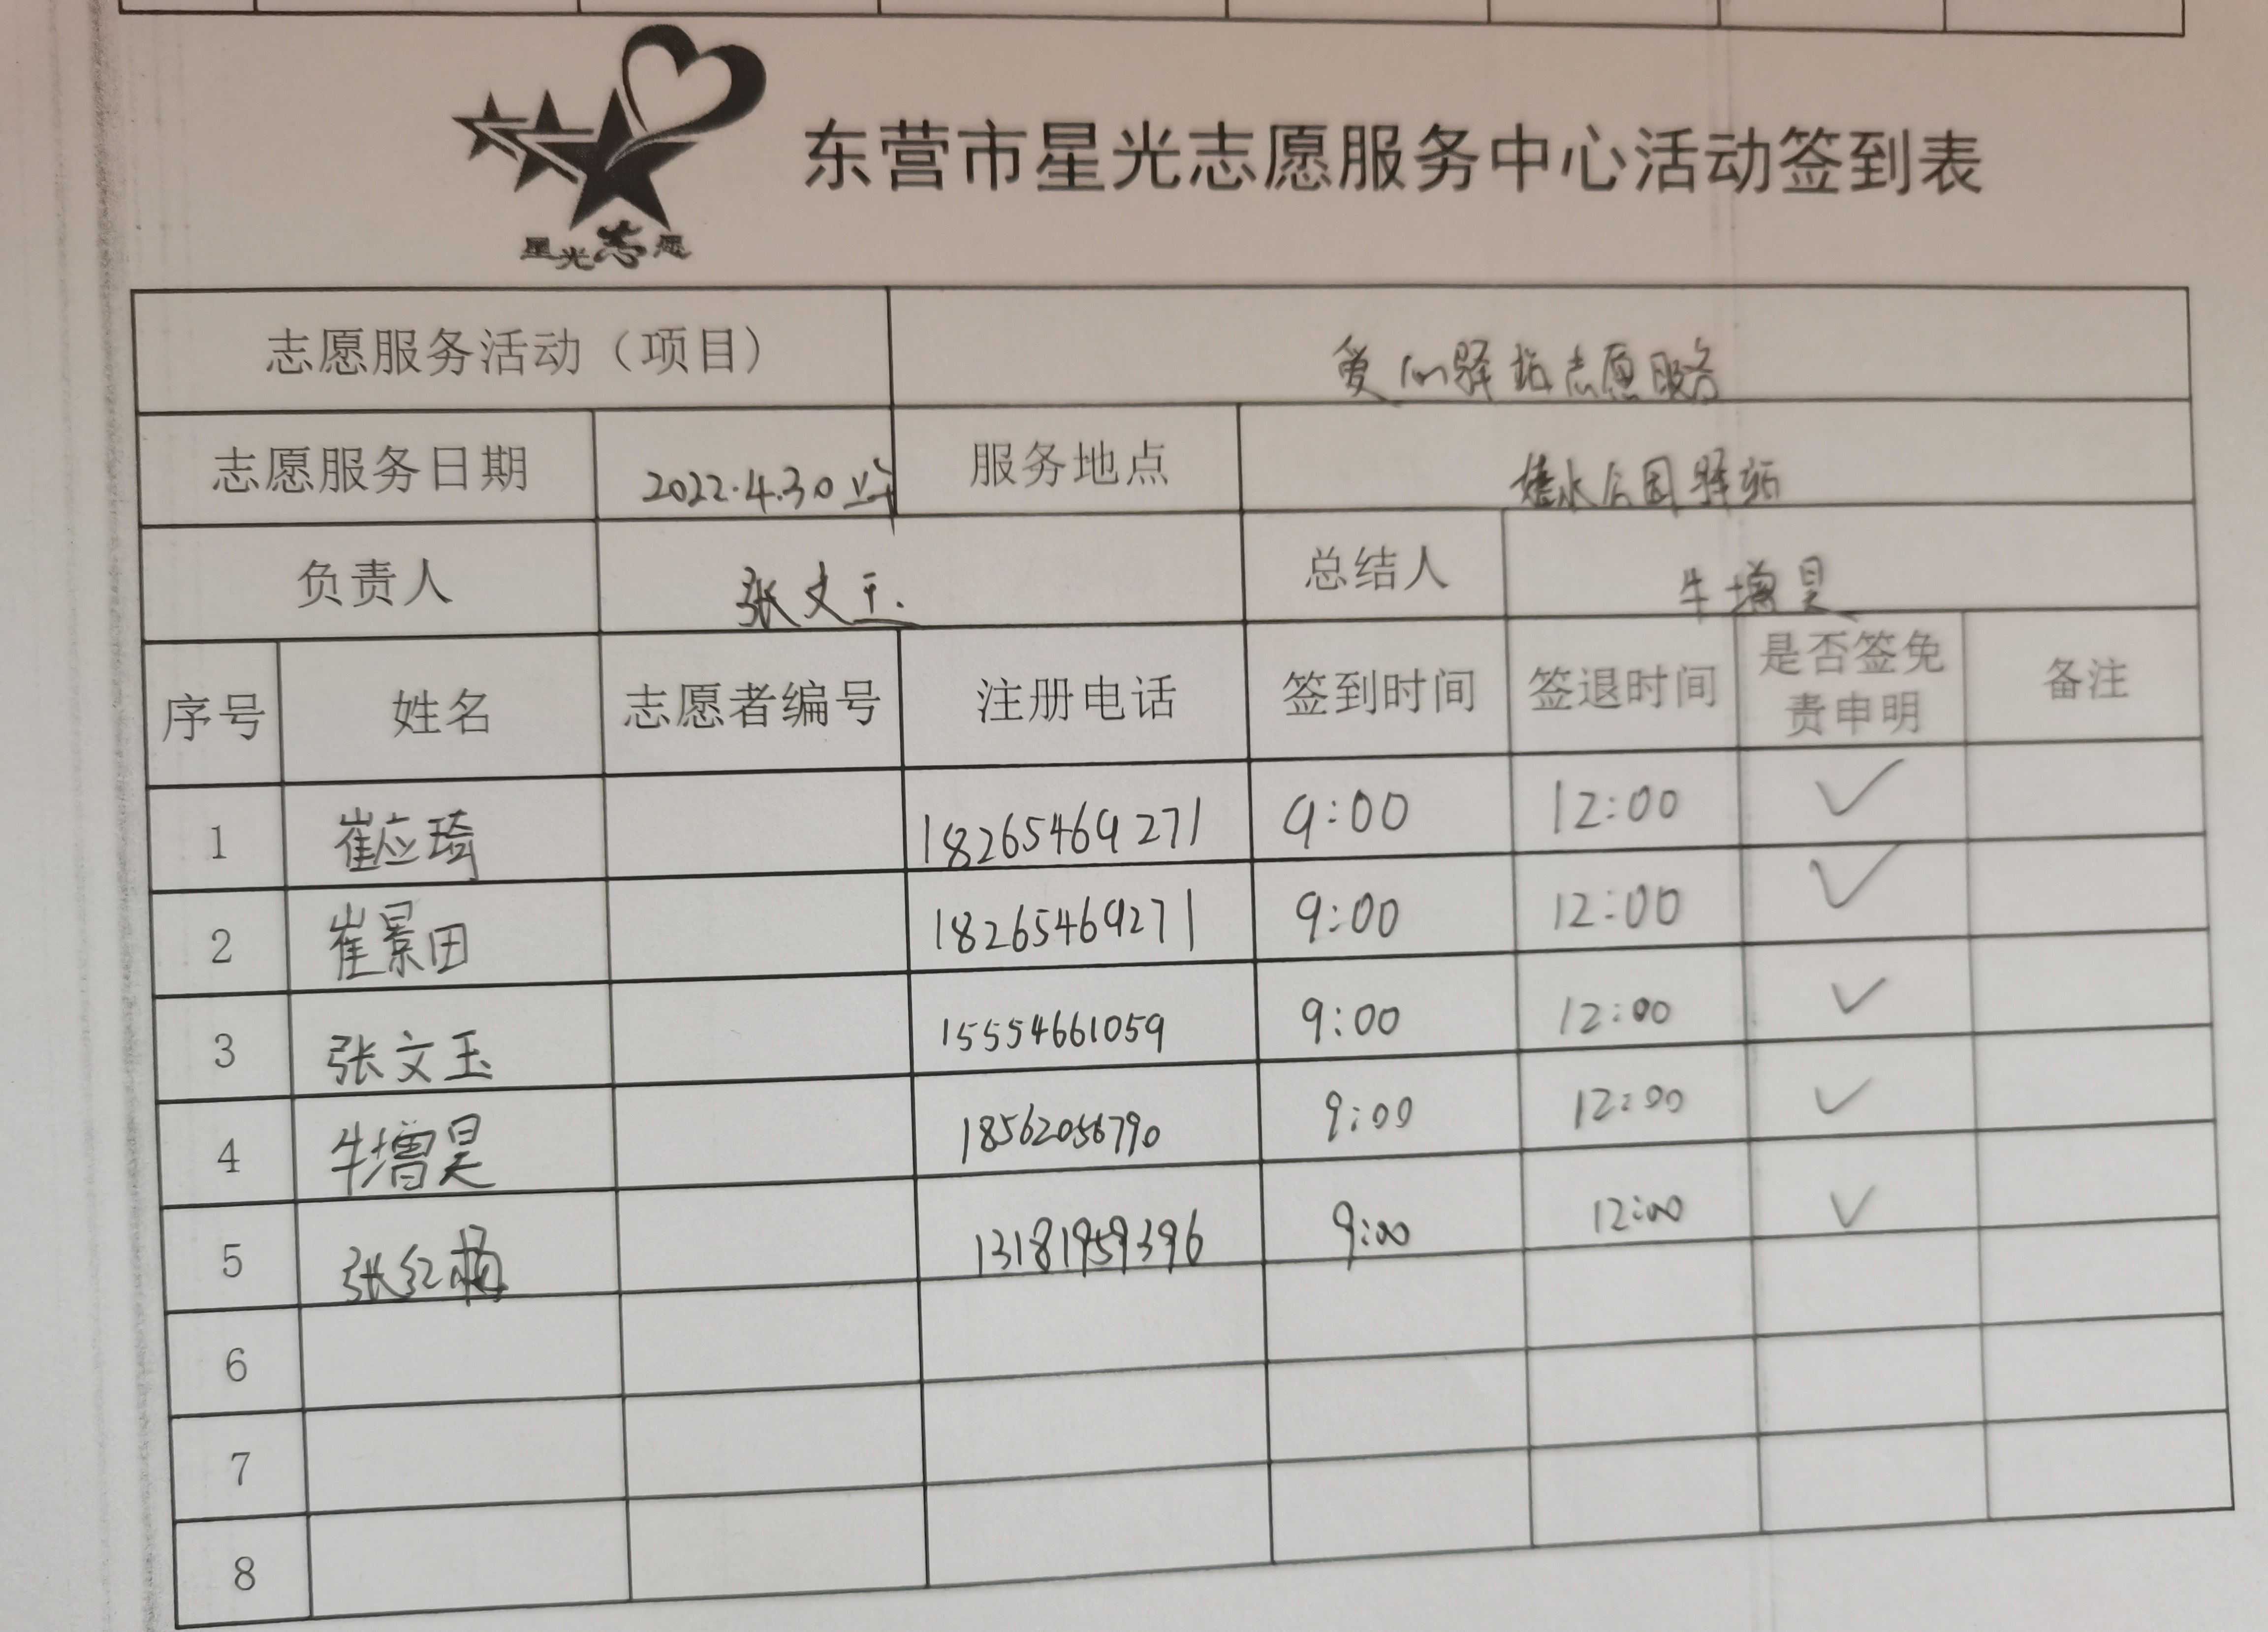 星光志愿
东营市星光志愿服务中心活动签到表
志愿服务活动（项目） 爱心驿站志愿服务
志愿服务日期 2022.4.30 服务地点 水公园驿站
负责人 张文玉 总结人 牛增昊
序号 姓名 志愿者编号 注册电话 签到时间 签退时间 是否签免责申明 备注
1 崔应琦 18265469271 9:00 12:00 ✓
2 崔景田 18265469271 9:00 12:00 ✓
3 张文玉 15554661059 9:00 12:00 ✓
4 牛增昊 18562056790 9:00 12:00 ✓
5 张红梅 13181959396 9:00 12:00 ✓
6
7
8